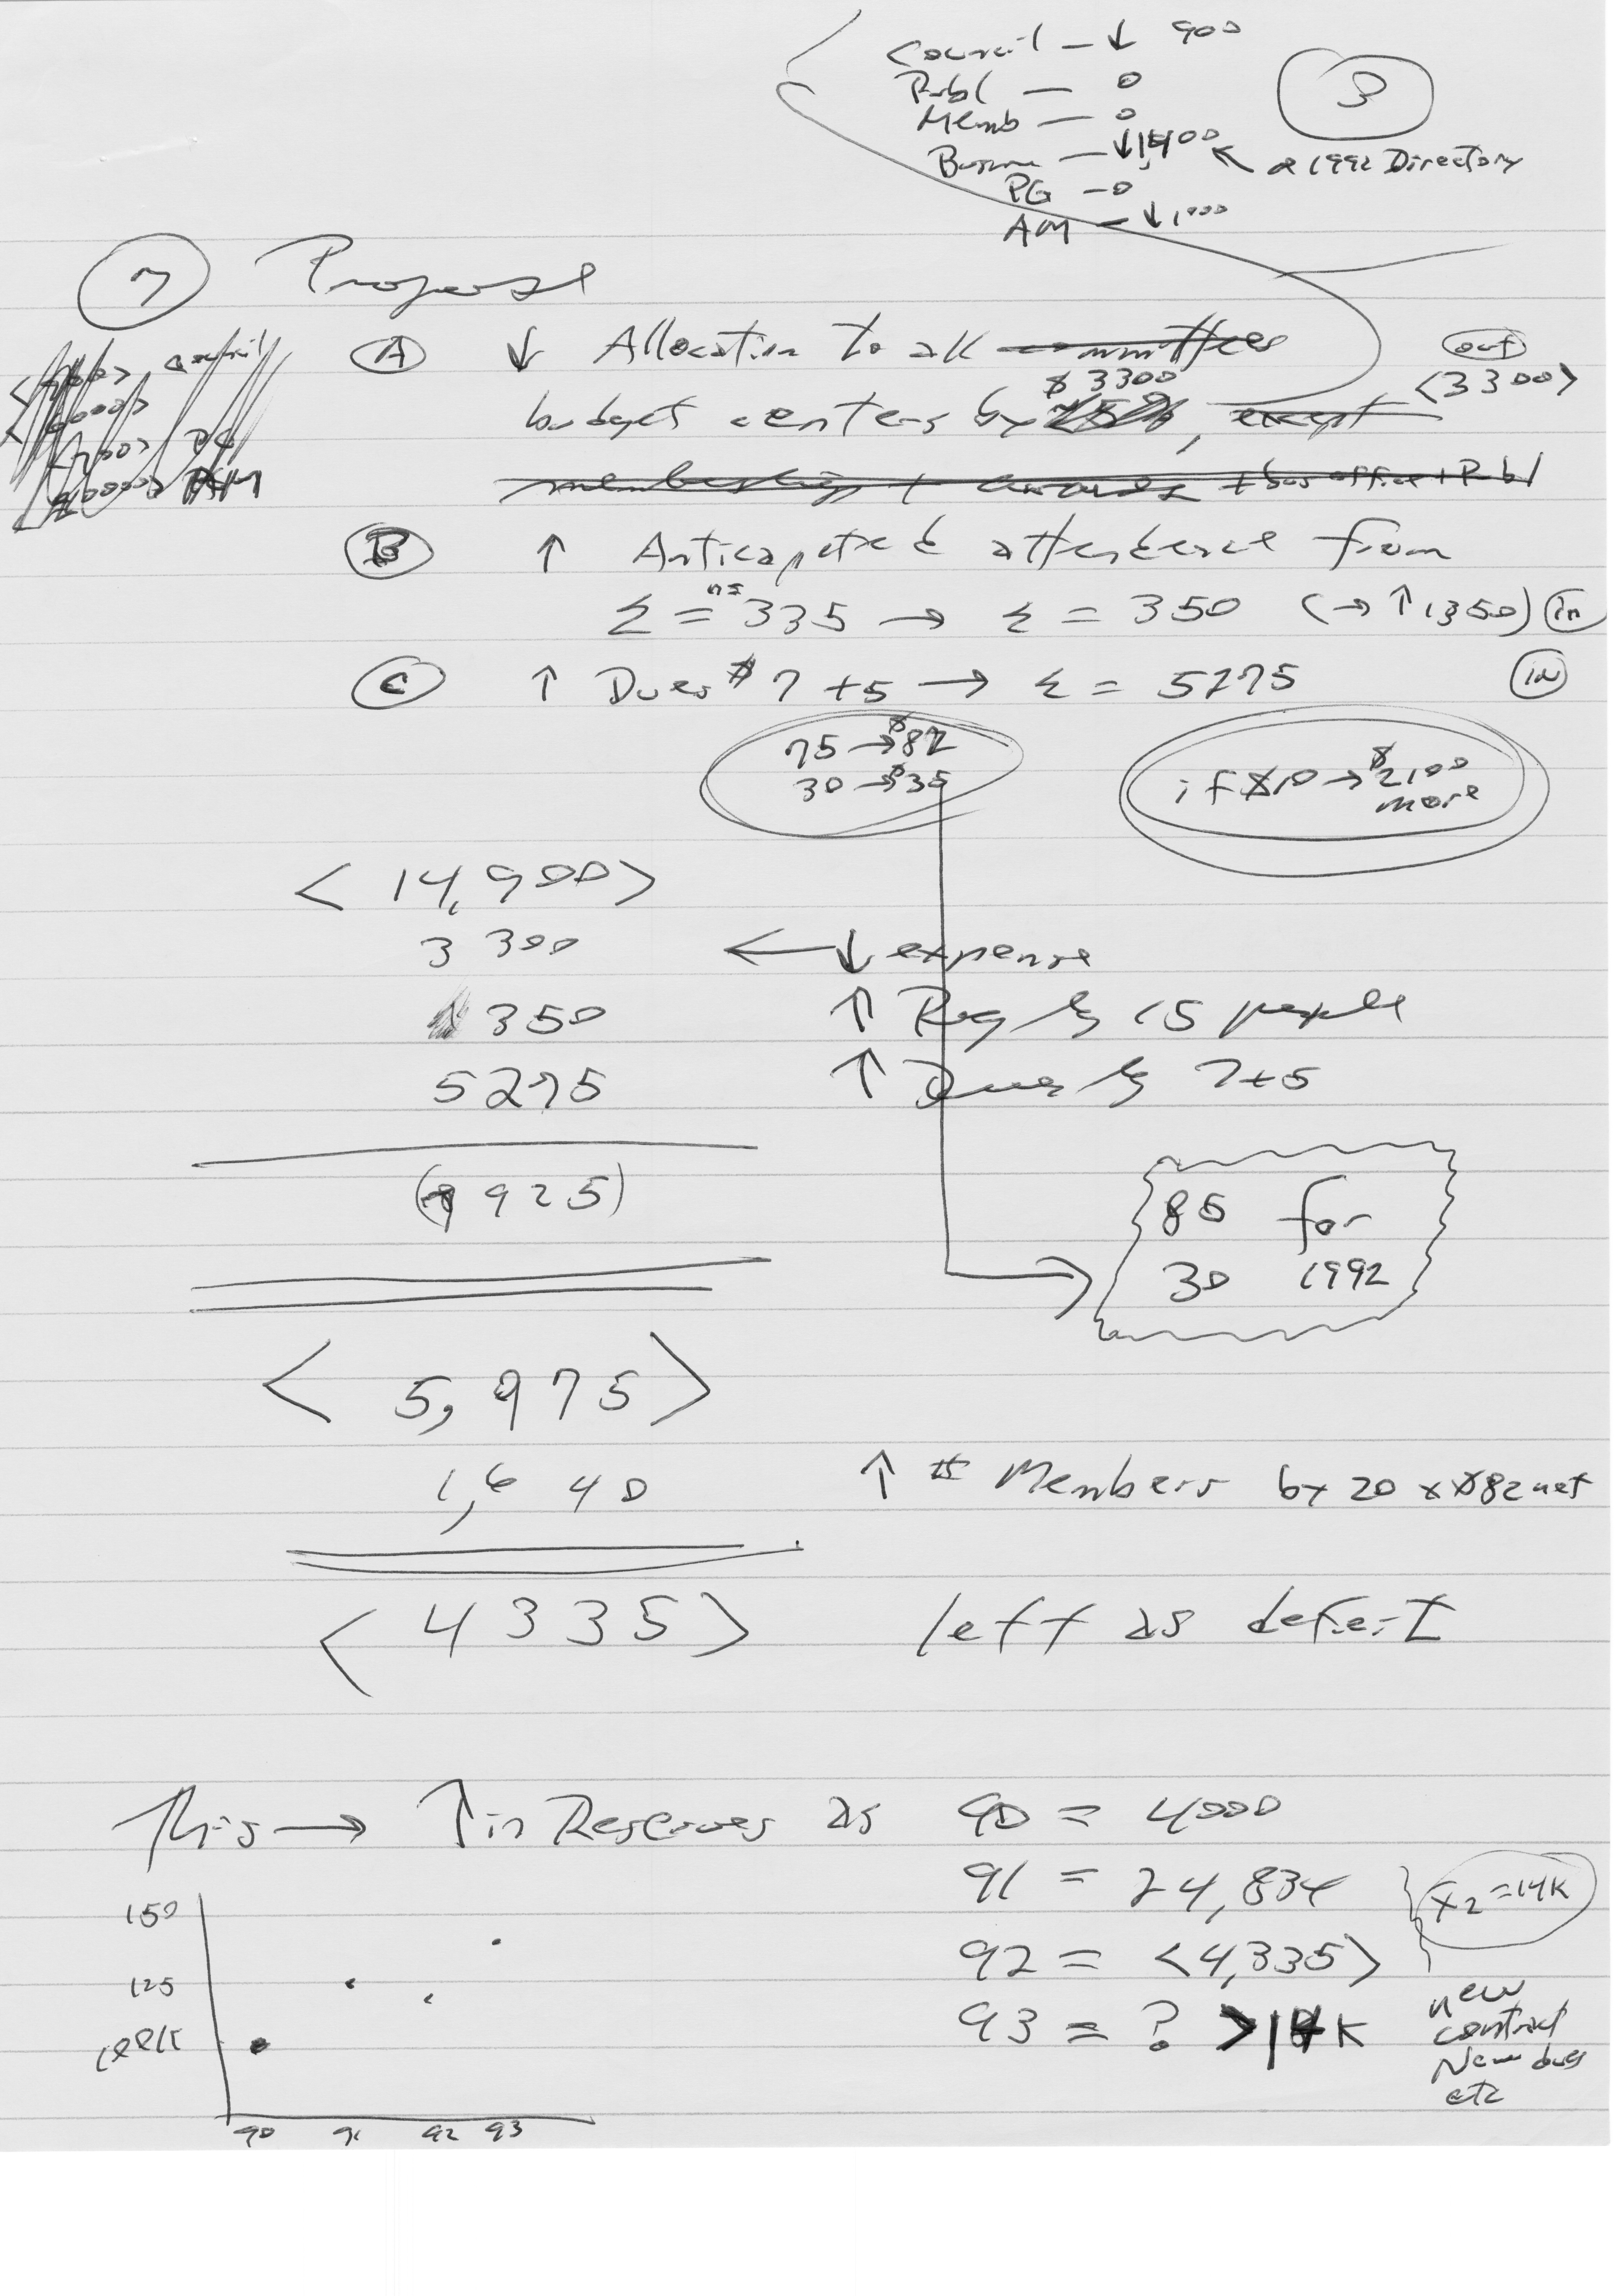 Council — ↓ 900
3
Publ — 0
Memb — 0
Busine — ↓ 1,400 ← 1992 Directory
PG — 0
AM — ↓ 1000
7 Propose
A ↓ Allocation to all committees out
budget centers by $3300, except <3300>
membership + awards + bus office + Publ
B ↑ Anticapated attendence from
Σ = 335 → Σ = 350 (→ ↑ 1350) in
C ↑ Dues $ 7 + 5 → Σ = 5275 in
75 → $82
30 → $35
if $10 → $2100
more
< 14,900 >
3 300 ← ↓ expense
1 350 ↑ Reg by 15 people
5275 ↑ Dues by 7+5
(9 925)
85 for
30 1992
< 5,975 >
1,640 ↑ # Members by 20 x $82 net
< 4335 > left as deficit
This → ↑ in Reserves as 90 = 4000
91 = 24,834
x̄2 = 14K
92 = <4,335>
93 = ? > 14K
new
contract
New dues
etc
150
125
100K
90 91 92 93